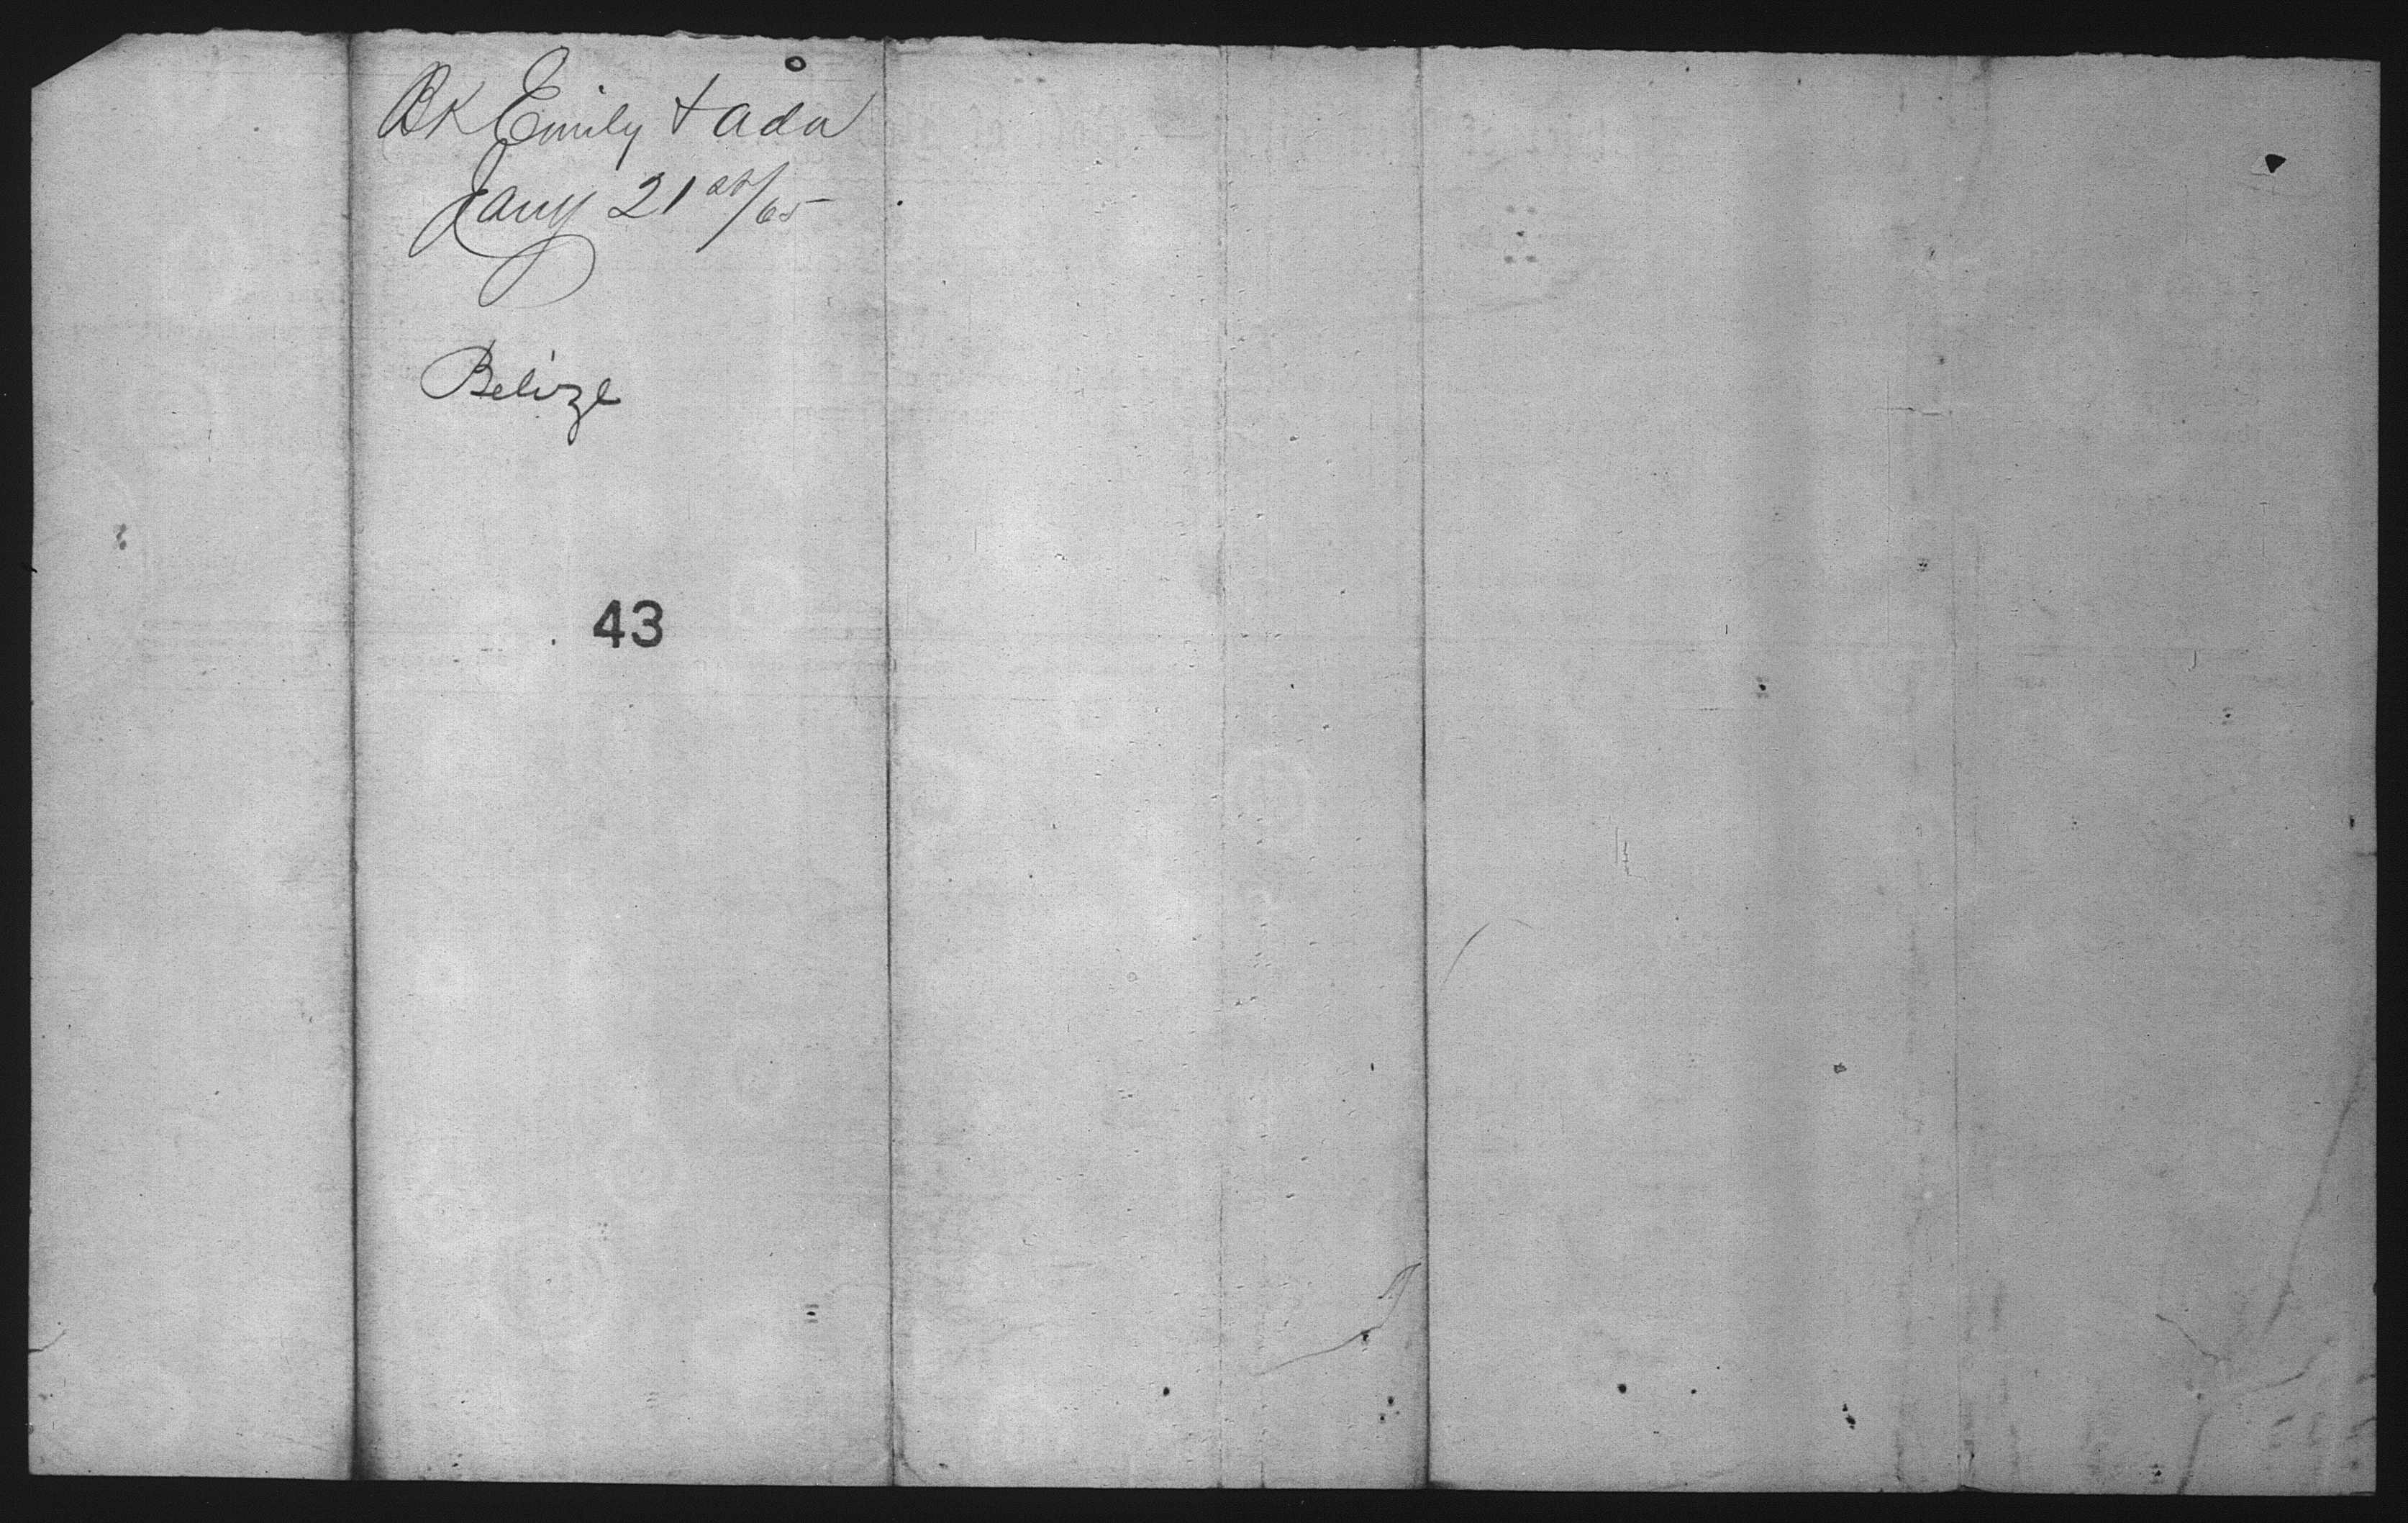 Bk Emily + Ada
Jany 21st/65
Belize
43